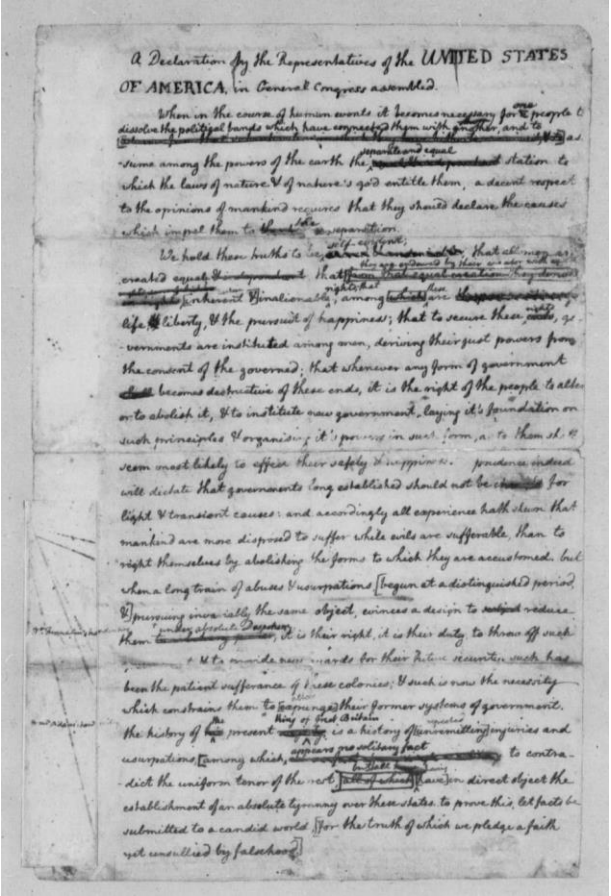 A Declaration by the Representatives of the UNITED STATES
OF AMERICA, in General Congress assembled.
When in the course of human events it becomes necessary for one people to
dissolve the political bands which have connected them with another, and to
as-
separate and equal
sume among the powers of the earth the station to
which the laws of nature & of nature's god entitle them, a decent respect
to the opinions of mankind requires that they should declare the causes
which impel them to the separation.
self-evident;
We hold these truths to be that all men are
they are endowed by their creator with
created equal & independent; that from that equal creation they derive
rights; that these
inherent & inalienable among which are
life, & liberty, & the pursuit of happiness; that to secure these rights, go-
vernments are instituted among men, deriving their just powers from
the consent of the governed; that whenever any form of government
shall becomes destructive of these ends, it is the right of the people to alter
or to abolish it, & to institute new government, laying it's foundation on
such principles & organising it's powers in such form, as to them shall
seem most likely to effect their safety & happiness. prudence indeed
will dictate that governments long established should not be changed for
light & transient causes: and accordingly all experience hath shewn that
mankind are more disposed to suffer while evils are sufferable, than to
right themselves by abolishing the forms to which they are accustomed. but
when a long train of abuses & usurpations [begun at a distinguished period
&] pursuing invariably the same object, evinces a design to reduce
under absolute Despotism
them it is their right, it is their duty to throw off such
& to provide new guards for their future security. such has
been the patient sufferance of these colonies; & such is now the necessity
alter
which constrains them to [expunge] their former systems of government.
the King of Great Britain repeated
the history of his present is a history of [unremitting] injuries and
appears no solitary fact
usurpations, [among which, to contra-
but all
dict the uniform tenor of the rest all of which [have] in direct object the
establishment of an absolute tyranny over these states. to prove this, let facts be
submitted to a candid world [for the truth of which we pledge a faith
yet unsullied by falsehood]